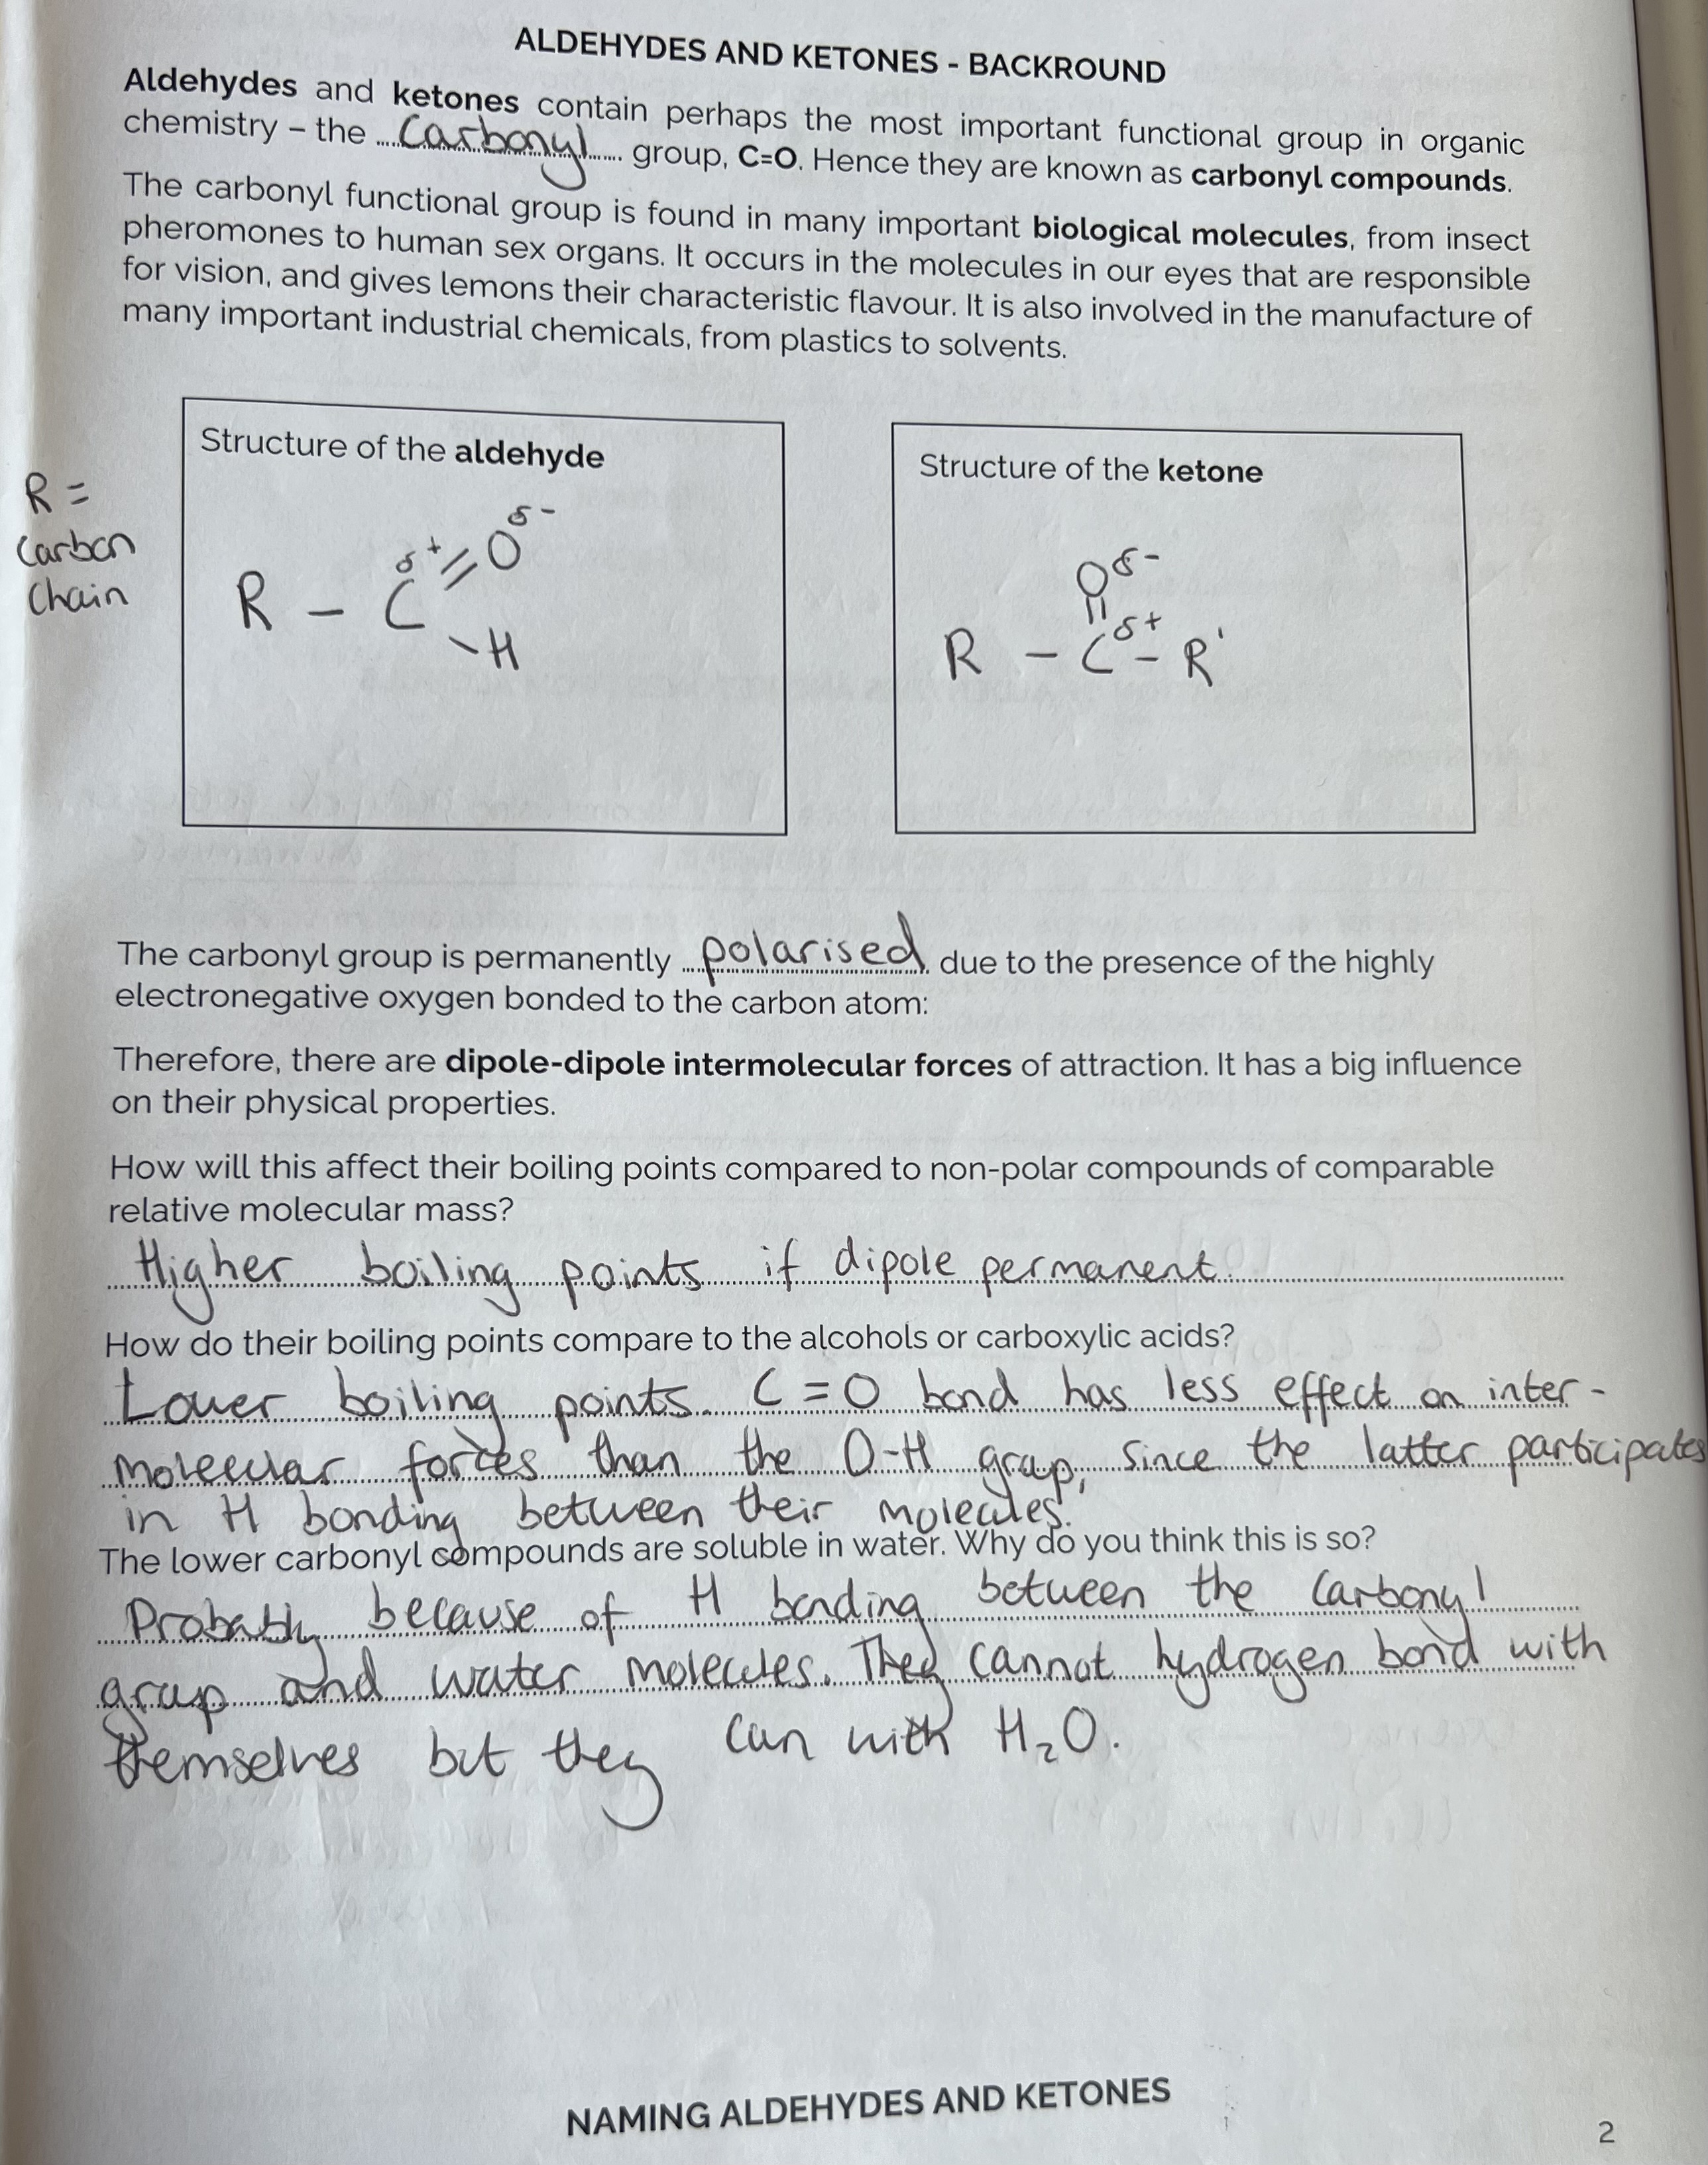 ALDEHYDES AND KETONES - BACKROUND
Aldehydes and ketones contain perhaps the most important functional group in organic
chemistry – the ....Carbonyl...... group, C=O. Hence they are known as carbonyl compounds.
The carbonyl functional group is found in many important biological molecules, from insect
pheromones to human sex organs. It occurs in the molecules in our eyes that are responsible
for vision, and gives lemons their characteristic flavour. It is also involved in the manufacture of
many important industrial chemicals, from plastics to solvents.
R =
Carbon
Chain
Structure of the aldehyde
δ-
δ+ = O
R – C
\ H
Structure of the ketone
O δ-
||
R – C δ+ – R'
The carbonyl group is permanently ...polarised... due to the presence of the highly
electronegative oxygen bonded to the carbon atom:
Therefore, there are dipole-dipole intermolecular forces of attraction. It has a big influence
on their physical properties.
How will this affect their boiling points compared to non-polar compounds of comparable
relative molecular mass?
Higher boiling points if dipole permanent.
How do their boiling points compare to the alcohols or carboxylic acids?
Lower boiling points. C = O bond has less effect on inter-
molecular forces than the O-H group, since the latter participates
in H bonding between their molecules.
The lower carbonyl compounds are soluble in water. Why do you think this is so?
Probably because of H bonding between the Carbonyl
group and water molecules. They cannot hydrogen bond with
themselves but they can with H₂O.
NAMING ALDEHYDES AND KETONES
2